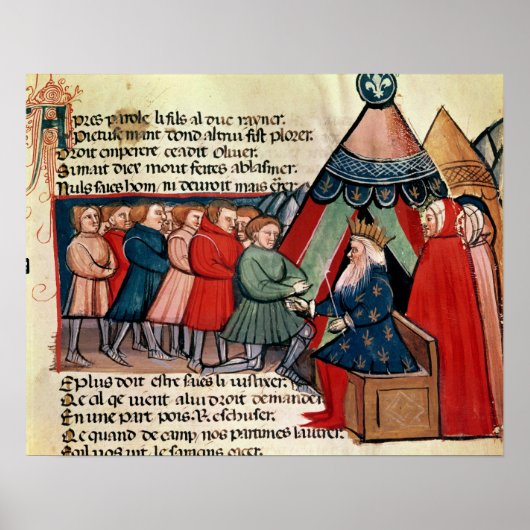 Apres parole li fils al duc rayner.
Pictuse mant dond altrui fist plorer.
Droit emperere ceadit Oliuer.
Si mait diex mout feites ablasmer
Nuls saies hom, ni deuroit mais
Eplus doit estre saies li iustixer.
De cal qe uient alui droit demander
En une part pois R. eschuser.
De quand de camp, nos partimes lautrer.